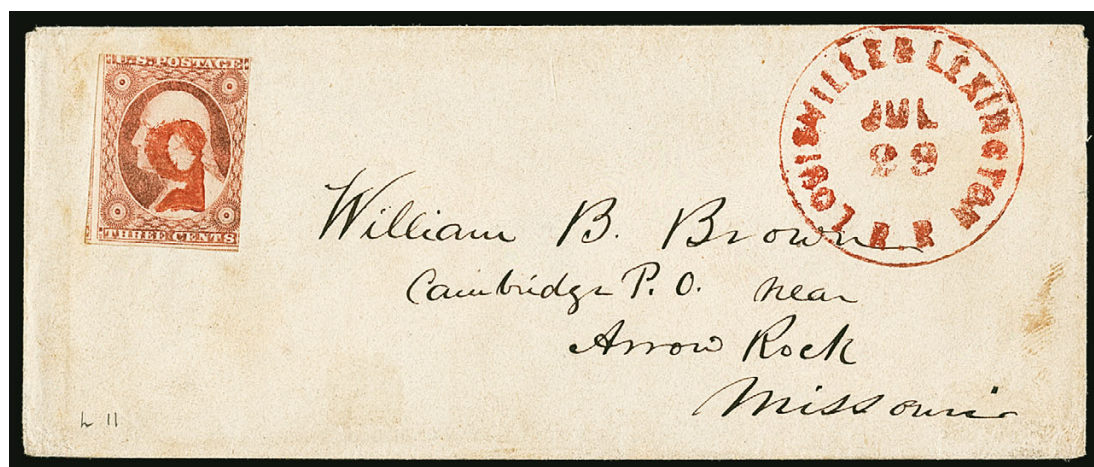 U.S. POSTAGE
9
THREE CENTS
LOUISVILLE & LEXINGTON R R
JUL
29
William B. Brown
Cambridge P. O. near
Arrow Rock
Missouri
L 11